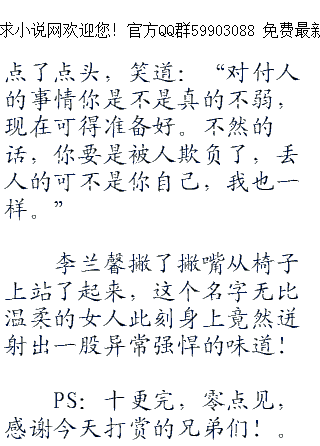 求小说网欢迎您！官方QQ群59903088 免费最新
点了点头，笑道：“对付人
的事情你是不是真的不弱，
现在可得准备好。不然的
话，你要是被人欺负了，丢
人的可不是你自己，我也一
样。”
李兰馨撇了撇嘴从椅子
上站了起来，这个名字无比
温柔的女人此刻身上竟然迸
射出一股异常强悍的味道！
PS：十更完，零点见，
感谢今天打赏的兄弟们！。